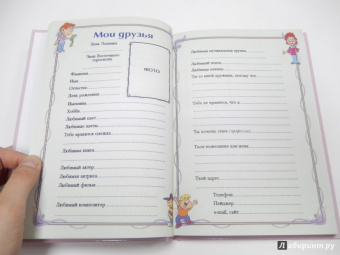 Мои друзья
Знак Зодиака
Знак Восточного
гороскопа
ФОТО
Фамилия
Имя
Отчество
День рождения
Именины
Хобби
Любимый цвет
Любимые цветы
Тебе нравится одежда
Любимая книга
Любимый актер
Любимая актриса
Любимый фильм
Любимый композитор
Любимая музыкальная группа
Любимый певец
Любимая певица
Ты со мной дружишь, потому что
Тебе не нравится, что я
Ты хочешь стать (профессия)
Твои пожелания для меня
Твой адрес:
Телефон
Пейджер
e-mail, сайт
лабиринт.ру